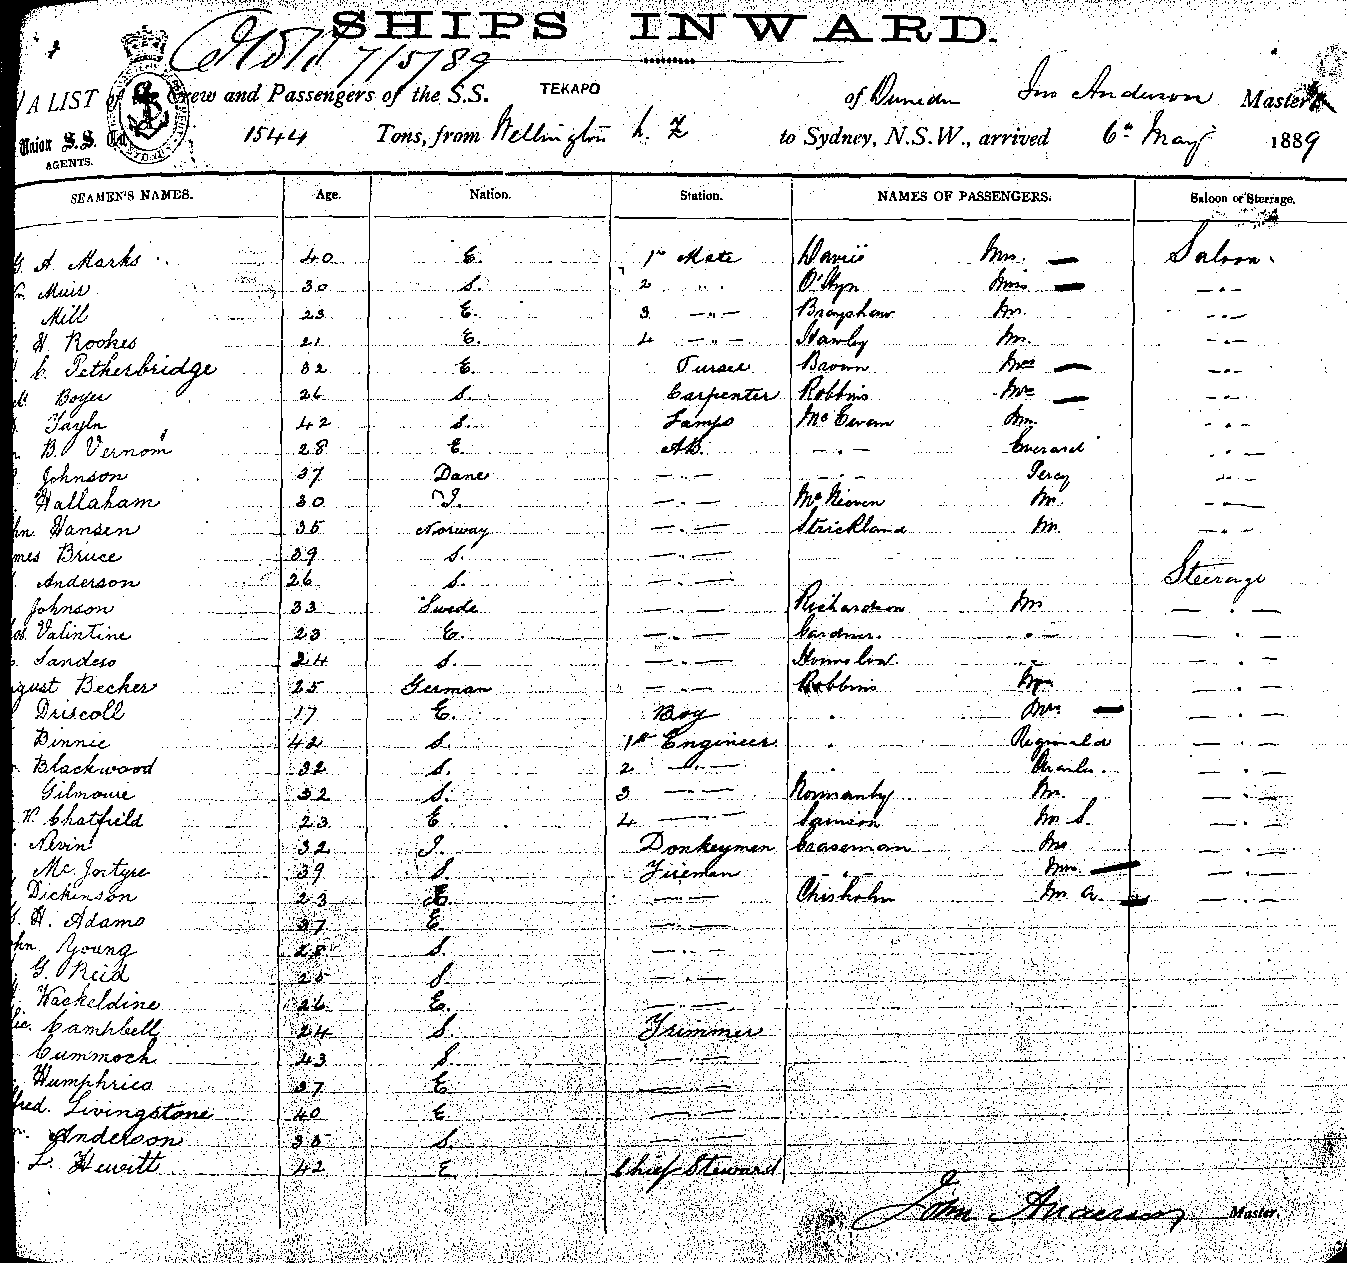 SHIPS INWARD.
7/5/89
A LIST of the Crew and Passengers of the S.S. TEKAPO of Dunedin Jno Anderson Master
Union S.S. Co. 1544 Tons, from Wellington N. Z to Sydney, N.S.W., arrived 6th May 1889
AGENTS.
SEAMEN'S NAMES. Age. Nation. Station. NAMES OF PASSENGERS. Saloon or Steerage.
G. A Marks 40 E. 1st Mate Davis Mrs. Saloon.
Muir 30 S. 2 " Miss — " —
Mill 23 E. 3 — " — Brayshaw Mr. — " —
H Rookes 21 E. 4 — " — Hawley Mr. — " —
C. Petherbridge 32 E. Purser Brown Mrs — " —
Boyer 26 S. Carpenter Robbins — " —
Taylor 42 S. Lamps — " —
B. Vernon 28 E. AB. — " — Everard — " —
Johnson 37 Dane — " — — " — Percy — " —
Hallaham 30 I. — " — Mr. — " —
Hansen 35 Norway — " — Strickland Mr. — " —
Bruce 39 S. — " —
Anderson 26 S. — " — Steerage
Johnson 33 Swede — " — Richardson Mr — " —
Valintine 23 E. — " — Gardner. " — — " —
24 S. — " — — " —
August Becker 25 German — " — Robbins Mr — " —
Driscoll 17 E. Boy " Mrs — " —
Binnie 42 S. 1st Engineer " Reginald — " —
Blackwood 32 S. 2 — " — " Charles. — " —
Gilmour 32 S. 3 — " — Normanby Mr. — " —
W. Chatfield 23 E 4 — " — Mr S. — " —
Nevin 32 I. Donkeyman Craseman Mr — " —
Mc Intyre 39 S. Fireman — " — Mrs — " —
Dickinson 23 E. — " — Chisholm Mr A. — " —
H. Adams 37 E — " —
John Young 28 S. — " —
G. Reid 25 S. — " —
Wackeldine 26 E. — " —
Campbell 24 S. Trimmer
Cummock 43 S. — " —
Humphries 37 E — " —
Alfred. Livingstone 40 E. — " —
Anderson 35 S. — " —
L. Hewitt 42 E Chief Steward
John Anderson Master.